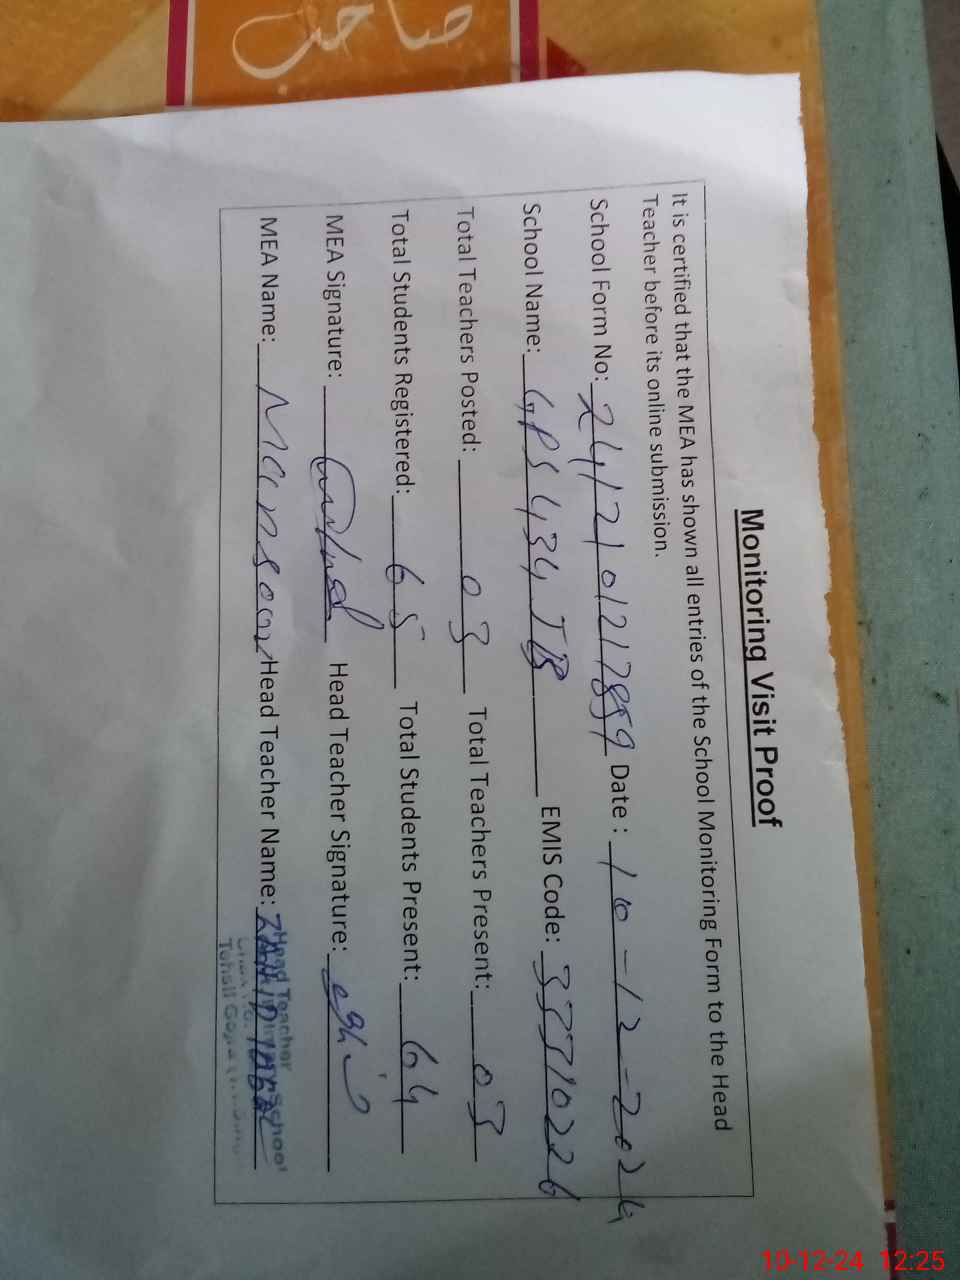 Monitoring Visit Proof
It is certified that the MEA has shown all entries of the School Monitoring Form to the Head
Teacher before its online submission.
School Form No: 2412101217859 Date : 10-12-2024
School Name: GPS 434 JB EMIS Code: 33310226
Total Teachers Posted: 03 Total Teachers Present: 03
Total Students Registered: 65 Total Students Present: 64
MEA Signature: Head Teacher Signature:
MEA Name: Mansoor Head Teacher Name: ZAHID IQBAL
Head Teacher
school
Tehsil Gojra
10-12-24 12:25